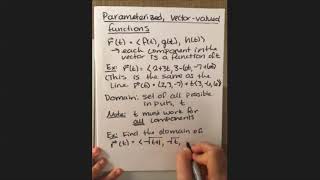 Parameterized, vector-valued
functions
r(t) = <f(t), g(t), h(t)>
→ each component in the
vector is a function of t
Ex: r(t) = <2+3t, 3-6t, -7+6t>
(This is the same as the
line r(t) = (2,3,-7) + t(3,-6,6)
Domain: set of all possible
inputs, t
Note: t must work for
all components
Ex: Find the domain of
r(t) = <√t+1, √t,